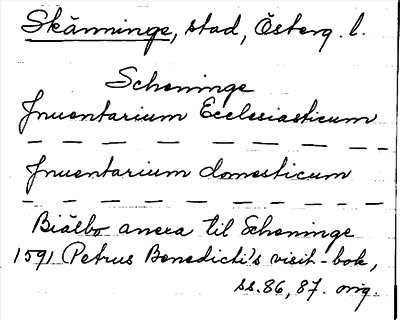 Skänninge, stad, Österg. l.
Scheninge
Inuentarium Ecclesiasticum
— — — — — — — — —
Inuentarium domesticum
— — — — — — — — —
Biälbo anexa til Scheninge
1591 Petrus Benedicti's visit-bok,
ss. 86, 87. orig.